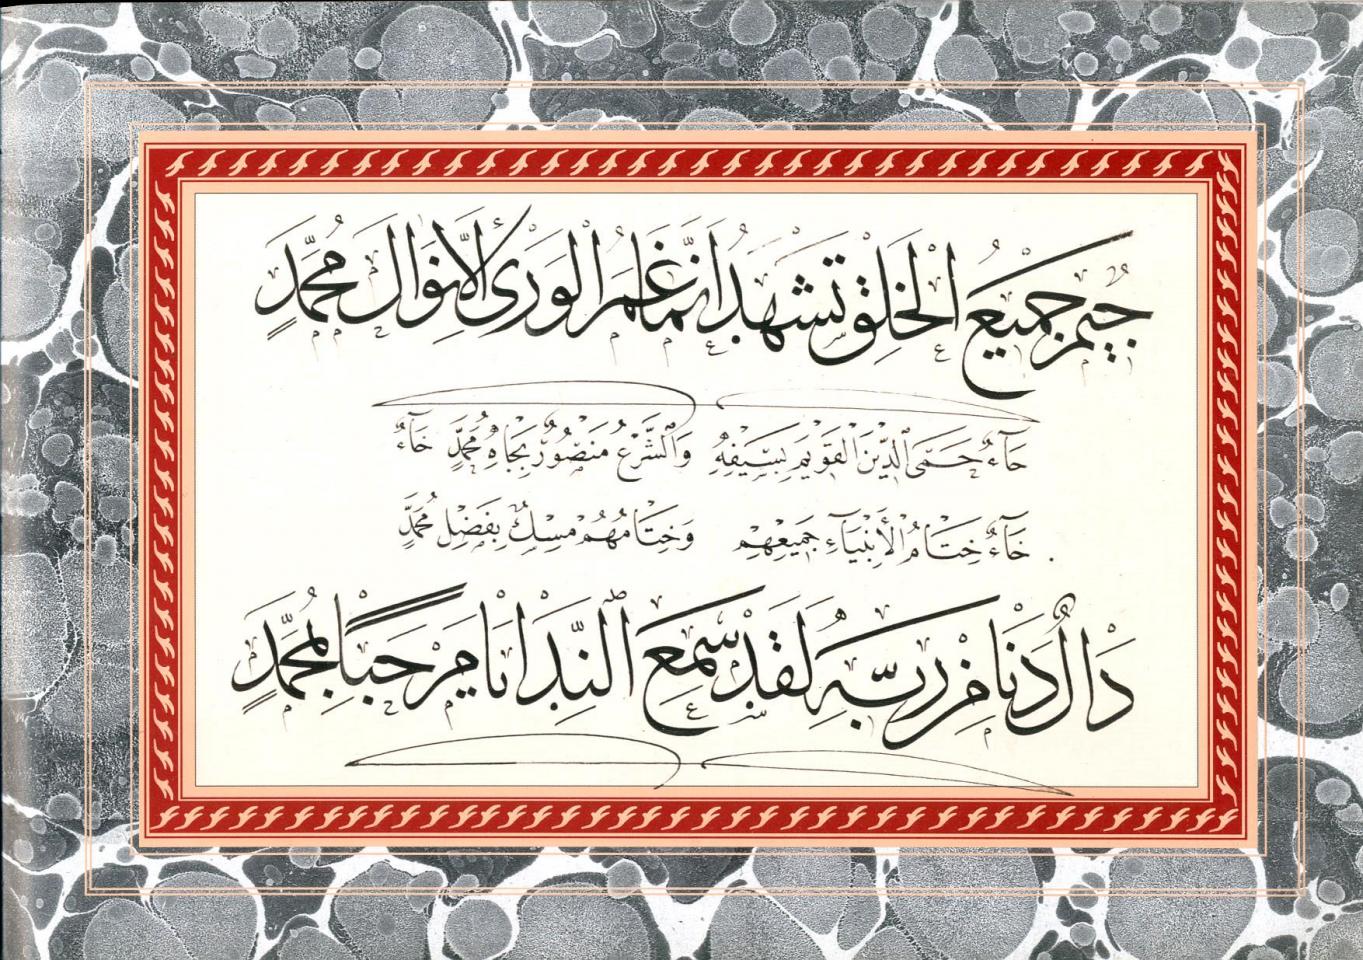 جِيمٌ جَمِيعُ الْخَلْقِ تَشْهَدُ أَنَّمَا غَمَرَ الْوَرَى إِلَّا نَوَالُ مُحَمَّدٍ
حَاءٌ حَمَى الدِّينَ الْقَوِيمَ بِسَيْفِهِ وَالشَّرْعُ مَنْصُورٌ بِجَاهِ مُحَمَّدٍ خَاءٌ
خَاءٌ خِتَامُ الْأَنْبِيَاءِ جَمِيعِهِمْ وَخِتَامُهُمْ مِسْكٌ بِفَضْلِ مُحَمَّدٍ
دَالٌ دَنَا مِنْ رَبِّهِ لَقَدْ سَمِعَ النِّدَا نَا مَرْحَبًا لِمُحَمَّدٍ